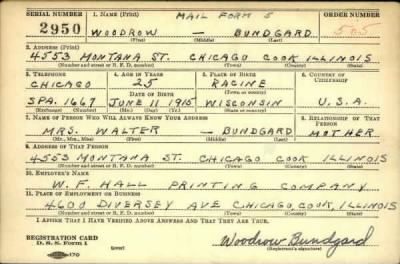 SERIAL NUMBER 1. NAME (Print) MAIL FORM 5 ORDER NUMBER
2950 WOODROW — BUNDGARD 505
(First) (Middle) (Last)
2. ADDRESS (Print)
4553 MONTANA ST. CHICAGO COOK ILLINOIS
(Number and street or R. F. D. number) (Town) (County) (State)
3. TELEPHONE 4. AGE IN YEARS 5. PLACE OF BIRTH 6. COUNTRY OF CITIZENSHIP
CHICAGO 25 RACINE
DATE OF BIRTH (Town or county)
SPA. 1667 JUNE 11 1915 WISCONSIN U.S.A.
(Exchange) (Number) (Mo.) (Day) (Yr.) (State or country)
7. NAME OF PERSON WHO WILL ALWAYS KNOW YOUR ADDRESS 8. RELATIONSHIP OF THAT PERSON
MRS. WALTER — BUNDGARD MOTHER
(Mr., Mrs., Miss) (First) (Middle) (Last)
9. ADDRESS OF THAT PERSON
4553 MONTANA ST. CHICAGO COOK ILLINOIS
(Number and street or R. F. D. number) (Town) (County) (State)
10. EMPLOYER'S NAME
W. F. HALL PRINTING COMPANY
11. PLACE OF EMPLOYMENT OR BUSINESS
4600 DIVERSEY AVE CHICAGO, COOK, ILLINOIS
(Number and street or R. F. D. number) (Town) (County) (State)
I AFFIRM THAT I HAVE VERIFIED ABOVE ANSWERS AND THAT THEY ARE TRUE.
REGISTRATION CARD Woodrow Bundgard
D. S. S. Form 1 (Registrant's signature)